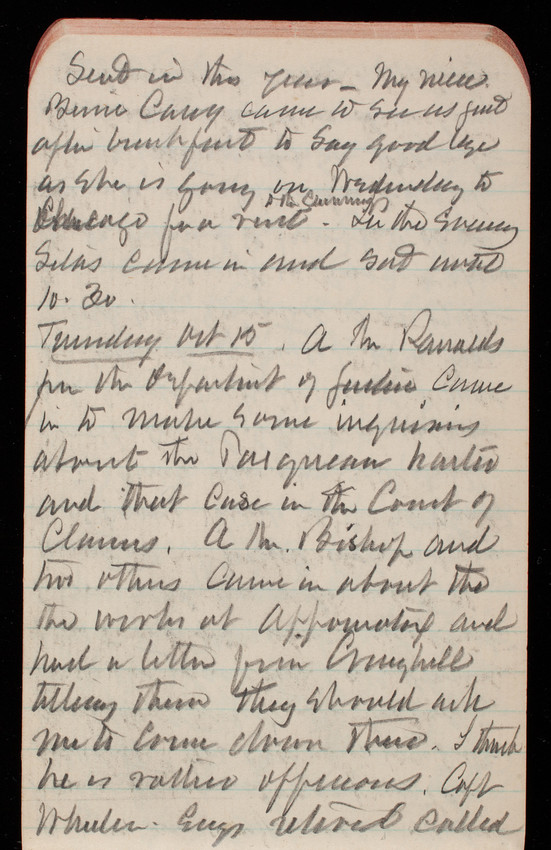 Send in this year - My niece
Bernie Casey came to see us just
after breakfast to say good bye
as she is going on Wednesday to
to the Cummings
Chicago for a visit. In the evening
Silas came in and sat until
10.30.
Tuesday Oct 15. A Mr Reynolds
from the Department of Justice came
in to make some inquiries
about the harbor
and that case in the Court of
Claims. A Mr. Bishop and
two others came in about the
the works at Appomatox and
had a letter from Craighill
telling them they should ask
me to come down there. I think
he is rather officious. Capt
Wheeler. Engs retired called